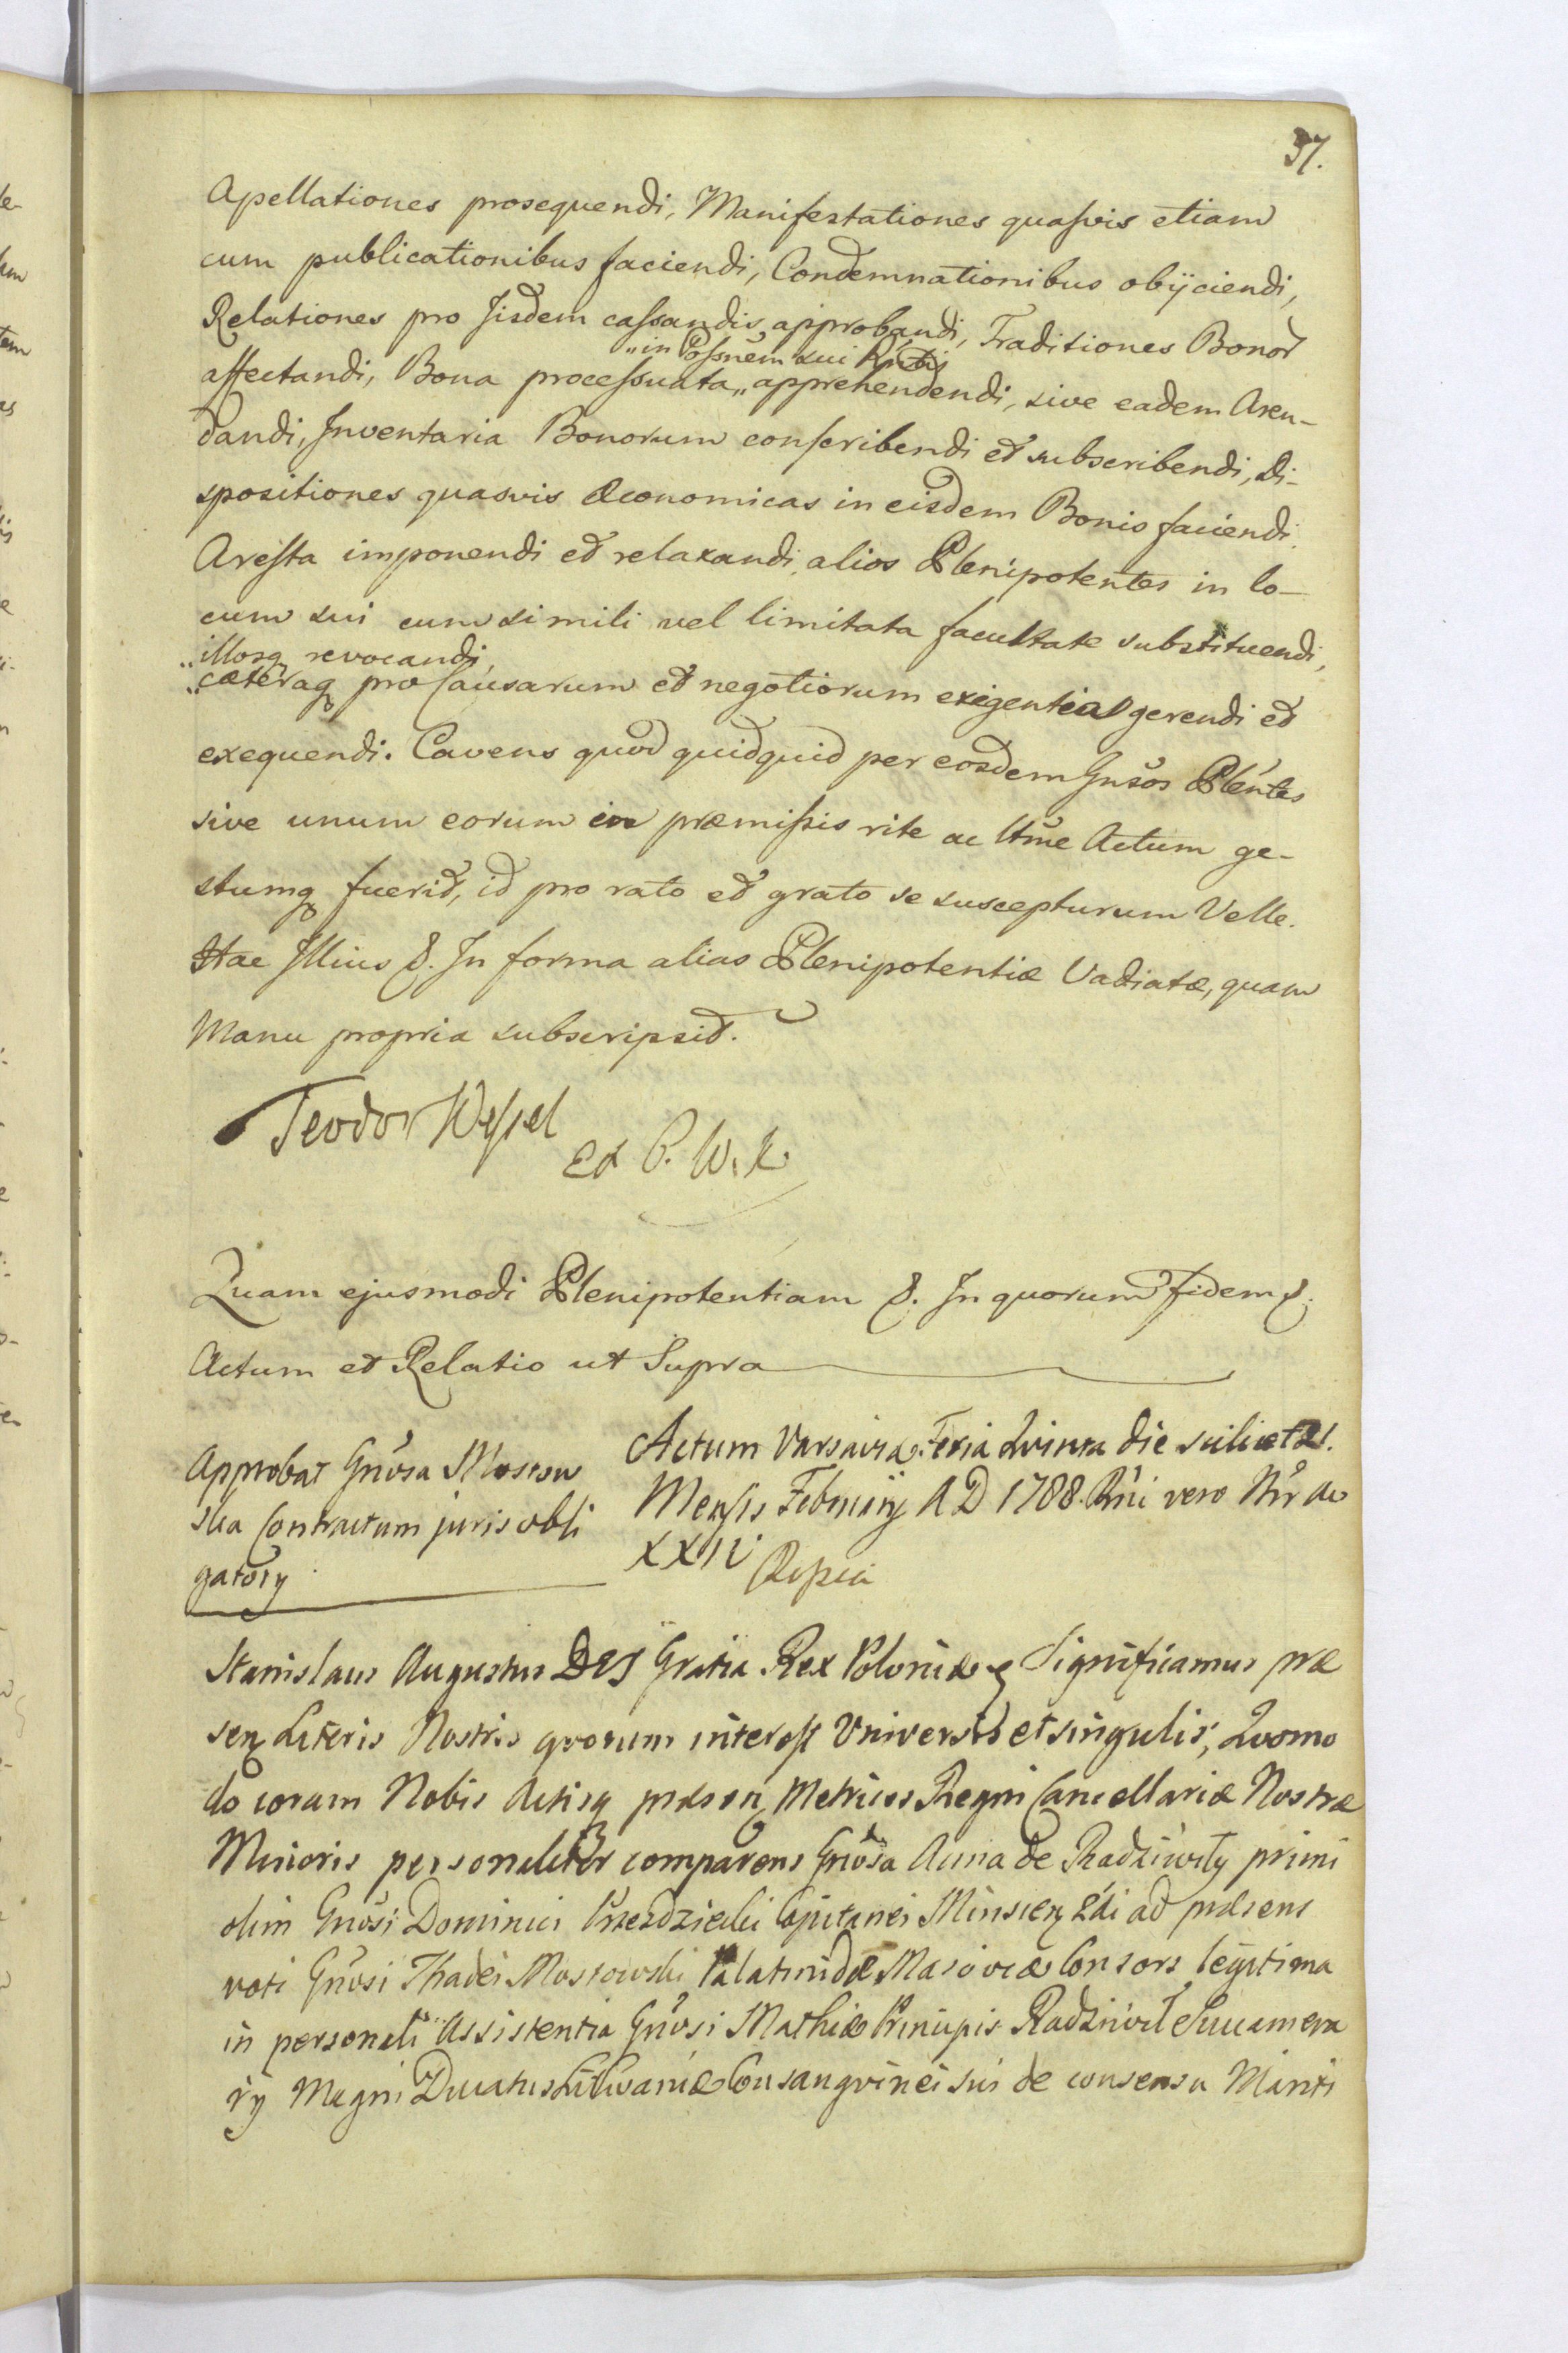 37.
Apellationes prosequendi, Manifestationes quasvis etiam
cum publicationibus faciendi, Condemnationibus obijciendi,
Relationes pro Jisdem cassandis approbandi, Traditiones Bonor
„in Possnem sui
affectandi, Bona processuata „ apprehendendi, sive eadem Aren-
dandi, Inventaria Bonorum conscribendi et subscribendi, Di-
spositiones quasvis Œconomicas in eisdem Bonis faciendi,
Aresta imponendi et relaxandi, alios Plenipotentes in lo-
cum sui cum simili vel limitata facultate substituendi,
„illosq revocandi,
„cæteraq pro Causarum et negotiorum exigentia gerendi et
exequendi. Cavens quod quidquid per eosdem Gnsos Plentes
sive unum eorum in præmissis rite ac ltme Actum ge-
stumq fuerit, id pro rato et grato se suscepturum Velle.
Hac Illius &. In forma alias Plenipotentiæ Vadiatæ, quam
Manu propria subscripsit.
Teodor Wessel
P. W. K.
Quam ejusmodi Plenipotentiam &. In quorum fidem &.
Actum et Relatio ut Supra
Approbat Gnosa Mostow
ska Contractum juris obli
gatory
Actum Varsaviæ Feria Qvinta die scilicet 21.
Mensis Februarij A D 1788. Rni vero Nri Ao
XXIV
Stanislaus Augustus DEI Gratia Rex Poloniæ & Significamus præ
senq Literis Nostris qvorum interest Universis et singulis, Qvomo
do coram Nobis Actisq præsenq Metrices Regni Cancellariæ Nostræ
Minoris personaliter comparens Gnosa Anna de Radziwiły primi
olim Gnosi Dominici Przezdziecki Capitanei Minscenq 2di ad præsens
voti Gnosi Thadei Mostowski Palatinidæ Masoviæ Consors legitima
in personali Assistentia Gnosi Mathiæ Principis Radziwił Succamera
rij Magni Ducatus Litvaniæ Consangvinei sui de consensu Mariti